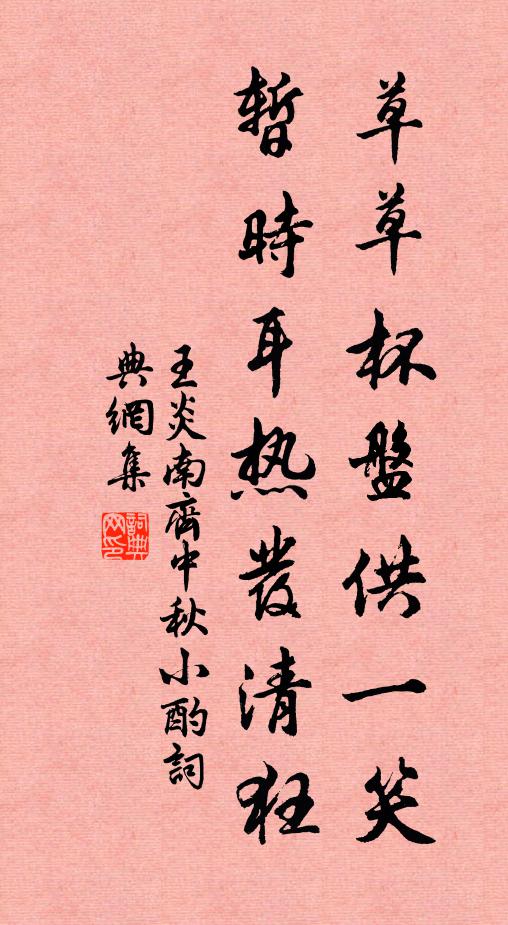 草草杯盤供一笑
暫時耳热發清狂
王炎南齊中秋小酌詞
典網集
詞典网印